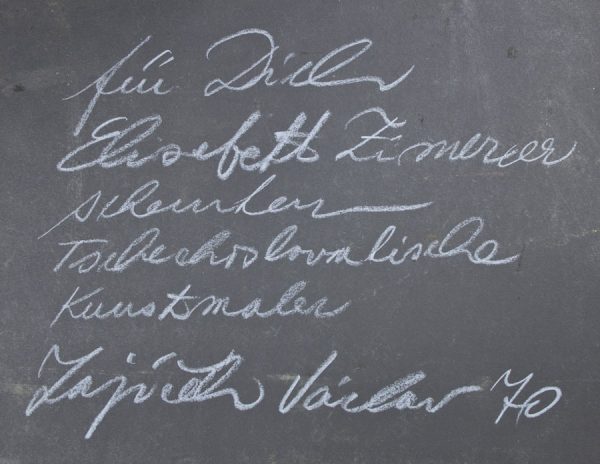 für Dich
Elisebeth Zimerer
schenken
Tschechoslovakische
Kunstmaler
Zajíček Václav 70